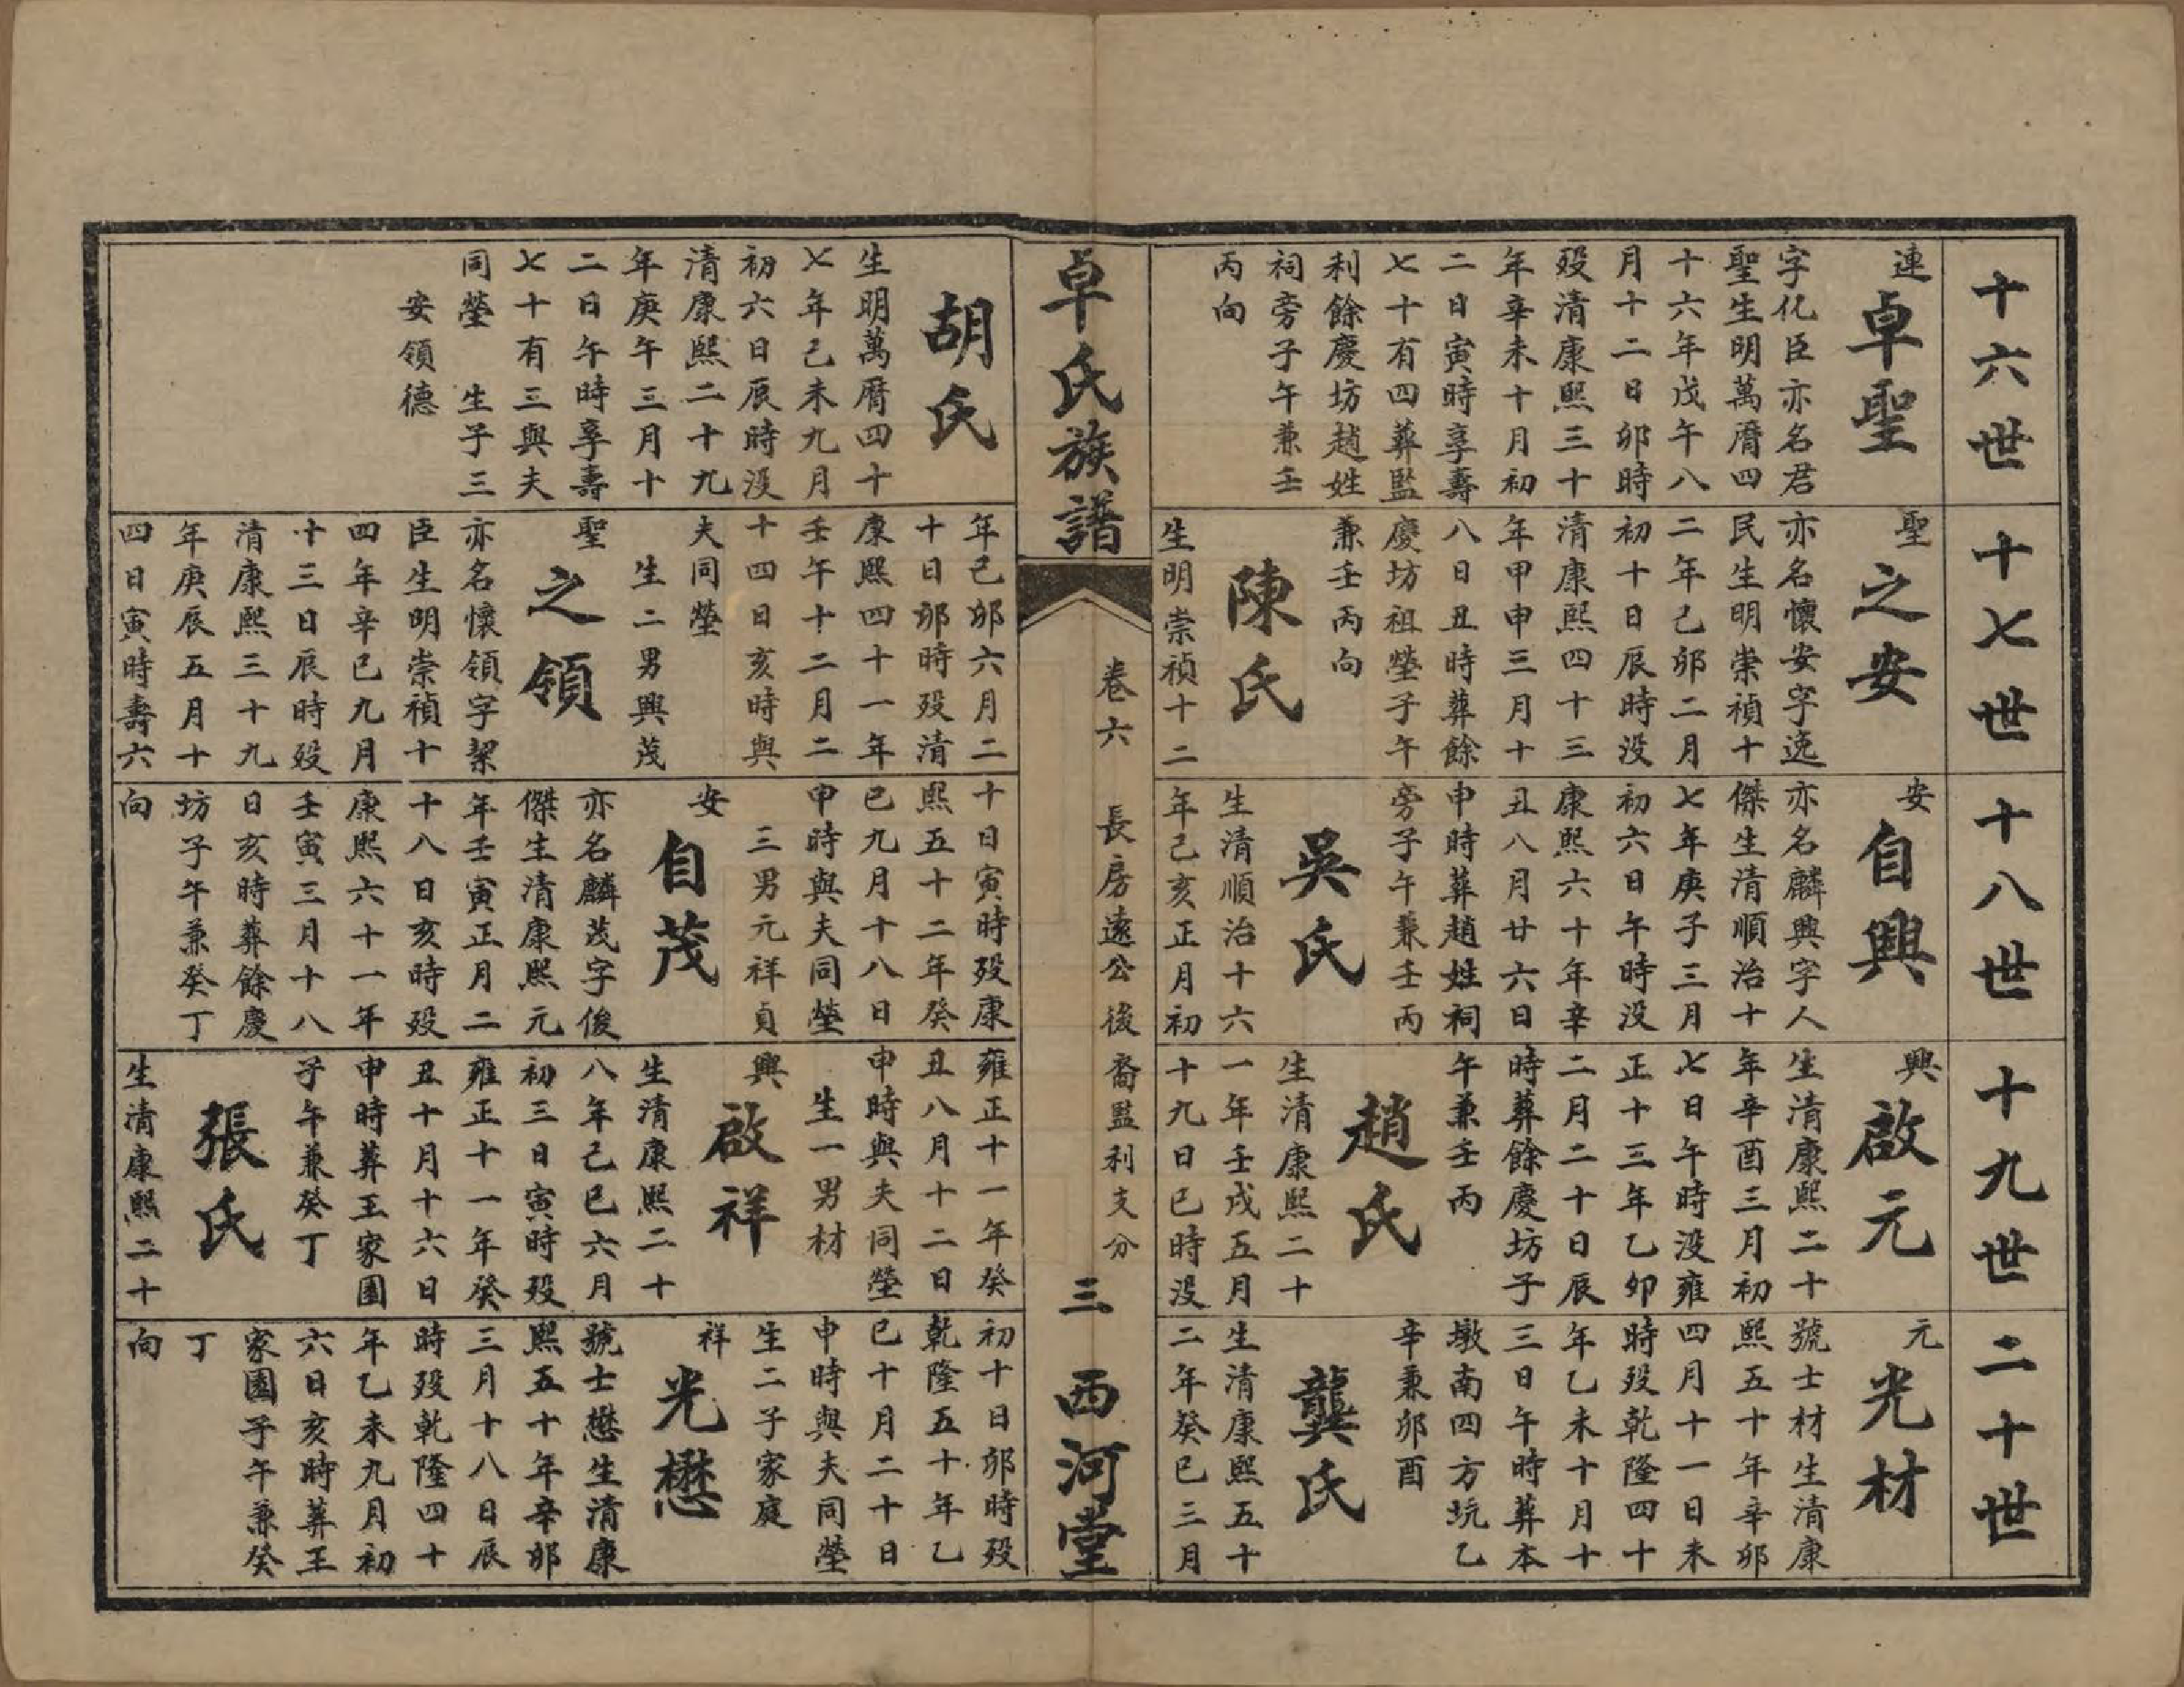 十六世
連
卓聖
字化臣亦名君
聖生明萬曆四
十六年戊午八
月十二日卯時
殁清康熙三十
年辛未十月初
二日寅時享壽
七十有四葬監
利餘慶坊趙姓
祠旁子午兼壬
丙向
十七世
聖
之安
亦名懷安字逸
民生明崇禎十
二年己卯二月
初十日辰時没
清康熙四十三
年甲申三月十
八日丑時葬餘
慶坊祖塋子午
兼壬丙向
陳氏
生明崇禎十二
十八世
安
自興
亦名麟興字人
傑生清順治十
七年庚子三月
初六日午時没
康熙六十年辛
丑八月廿六日
申時葬趙姓祠
旁子午兼壬丙
吳氏
生清順治十六
年己亥正月初
十九世
興
啟元
生清康熙二十
年辛酉三月初
七日午時没雍
正十三年乙卯
二月二十日辰
時葬餘慶坊子
午兼壬丙
趙氏
生清康熙二十
一年壬戌五月
十九日巳時没
二十世
元
光材
號士材生清康
熙五十年辛卯
四月十一日未
時殁乾隆四十
年乙未十月十
三日午時葬本
墩南四方坑乙
辛兼卯酉
龔氏
生清康熙五十
二年癸巳三月
卓氏族譜
卷六
長房遠公後裔監利支分
三
西河堂
胡氏
生明萬曆四十
七年己未九月
初六日辰時没
清康熙二十九
年庚午三月十
二日午時享壽
七十有三與夫
同塋 生子三
安領德
年己卯六月二
十日卯時殁清
康熙四十一年
壬午十二月二
十四日亥時與
夫同塋
生二男興茂
聖
之領
亦名懷領字絜
臣生明崇禎十
四年辛巳九月
十三日辰時殁
清康熙三十九
年庚辰五月十
四日寅時壽六
十日寅時殁康
熙五十二年癸
巳九月十八日
申時與夫同塋
三男元祥貞
安
自茂
亦名麟茂字俊
傑生清康熙元
年壬寅正月二
十八日亥時殁
康熙六十一年
壬寅三月十八
日亥時葬餘慶
坊子午兼癸丁
向
雍正十一年癸
丑八月十二日
申時與夫同塋
生一男材
興
啟祥
生清康熙二十
八年己巳六月
初三日寅時殁
雍正十一年癸
丑十月十六日
申時葬王家園
子午兼癸丁
張氏
生清康熙二十
初十日卯時殁
乾隆五十年乙
巳十月二十日
申時與夫同塋
生二子家庭
祥
光懋
號士懋生清康
熙五十年辛卯
三月十八日辰
時殁乾隆四十
年乙未九月初
六日亥時葬王
家園子午兼癸
丁
向